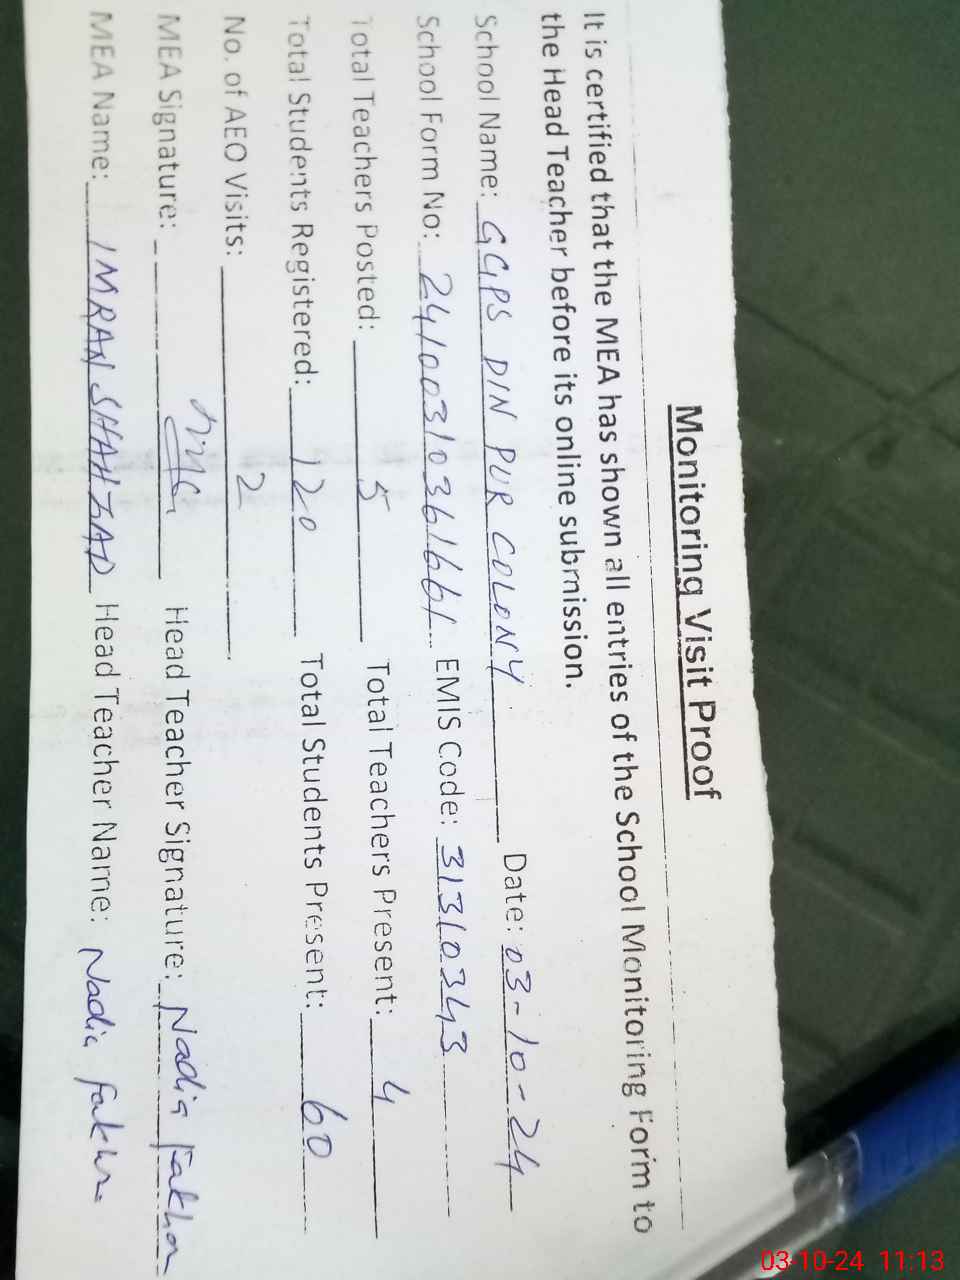 Monitoring Visit Proof
It is certified that the MEA has shown all entries of the School Monitoring Form to
the Head Teacher before its online submission.
School Name: GGPS DIN PUR COLONY Date: 03-10-24
School Form No: 24100310361661 EMIS Code: 31310343
Total Teachers Posted: 5 Total Teachers Present: 4
Total Students Registered: 120 Total Students Present: 60
No. of AEO Visits: 2
MEA Signature: Head Teacher Signature: Nadia Fakhar
MEA Name: IMRAN SHAHZAD Head Teacher Name: Nadia Fakhr
03-10-24 11:13